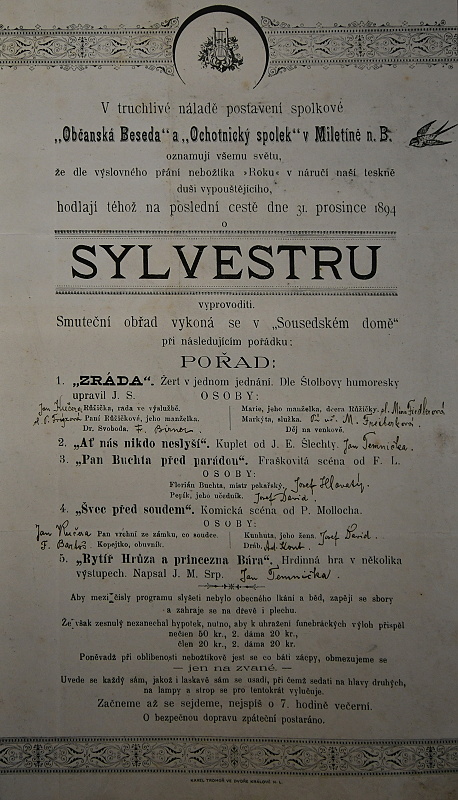 V truchlivé náladě postavení spolkové
„Občanská Beseda“ a „Ochotnický spolek“ v Miletíně n. B.
oznamují všemu světu,
že dle výslovného přání nebožtíka »Roku« v náručí naší teskně
duši vypouštějícího,
hodlají téhož na poslední cestě dne 31. prosince 1894
o
SYLVESTRU
vyprovoditi.
Smuteční obřad vykoná se v „Sousedském domě“
při následujícím pořádku:
POŘAD:
1. „ZRÁDA“. Žert v jednom jednání. Dle Štolbovy humoresky
upravil J. S.
OSOBY:
Jan Kučera Růžička, rada ve výslužbě.
Paní Růžičková, jeho manželka.
Dr. Svoboda. F.
Marie, jeho manželka, dcera Růžičky. sl. Mína Fiedlerová
Markýta, služka. M. Fiedlerová
Děj na venkově.
2. „Ať nás nikdo neslyší“. Kuplet od J. E. Šlechty. Jan Temnička.
3. „Pan Buchta před parádou“. Fraškovitá scéna od F. L.
OSOBY:
Florián Buchta, mistr pekařský. Josef Hlovatý.
Pepík, jeho učedník. Josef David.
4. „Švec před soudem“. Komická scéna od P. Mollocha.
OSOBY:
Jan Kučera Pan vrchní ze zámku, co soudce.
F. Bartoš Kopejtko, obuvník.
Kunhuta, jeho žena. Josef David.
Dráb. Ad. Kout.
5. „Rytíř Hrůza a princezna Bára“. Hrdinná hra v několika
výstupech. Napsal J. M. Srp. Jan Temnička.
Aby mezi čísly programu slyšeti nebylo obecného lkání a běd, zapějí se sbory
a zahraje se na dřevě i plechu.
Že však zesnulý nezanechal hypotek, nutno, aby k uhražení funebráckých výloh přispěl
nečlen 50 kr., 2. dáma 20 kr.,
člen 20 kr., 2. dáma 20 kr.
Poněvadž při oblíbenosti nebožtíkově jest se co báti zácpy, obmezujeme se
— jen na zvané. —
Uvede se každý sám, jakož i laskavě sám se usadí, při čemž sedati na hlavy druhých,
na lampy a strop se pro tentokrát vylučuje.
Začneme až se sejdeme, nejspíš o 7. hodině večerní.
O bezpečnou dopravu zpáteční postaráno.
KAREL TROHOŘ VE DVOŘE KRÁLOVÉ N. L.